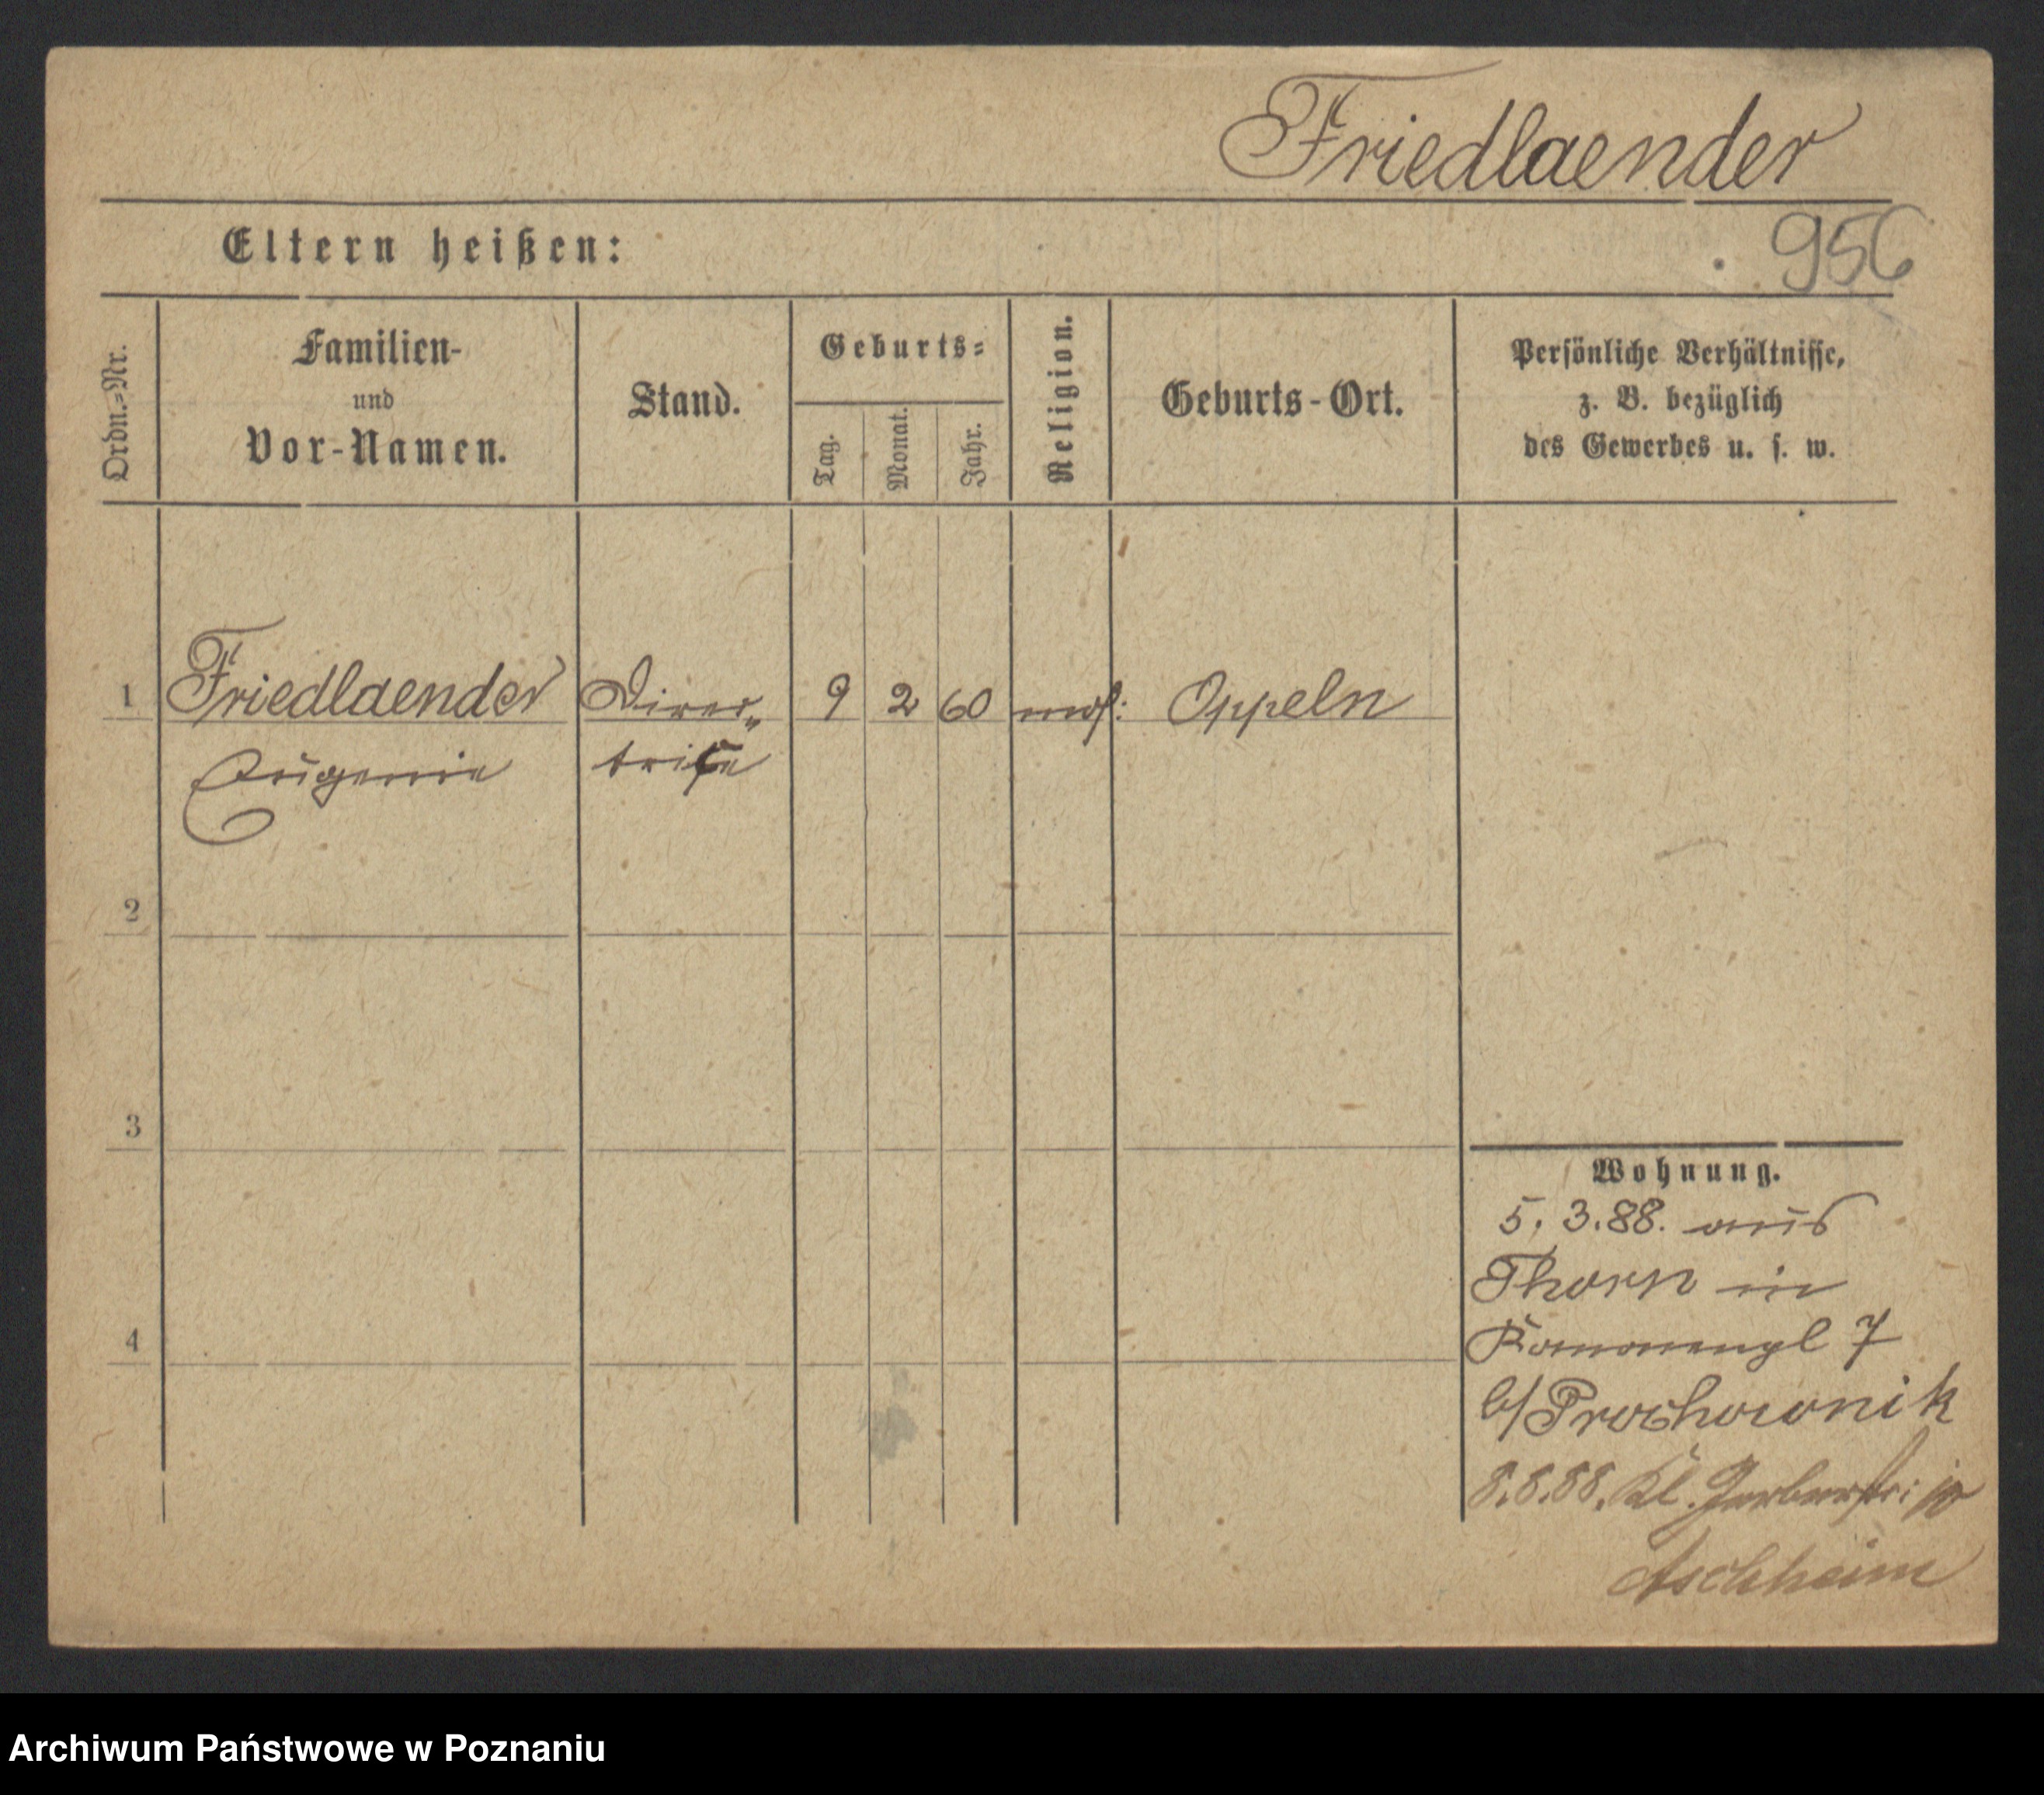 Friedlaender
Eltern heißen:
956
Ordn.=Nr.
Familien-
und
Vor-Namen.
Stand.
Geburts=
Tag.
Monat.
Jahr.
Religion.
Geburts-Ort.
Persönliche Verhältnisse,
z. B. bezüglich
des Gewerbes u. s. w.
1 Friedlaender Direc= 9 2 60 mos: Oppeln
Eugenie trice
2
3
4
Wohnung.
5. 3. 88. aus
Thorn in
7
b/ Prochownik
8.8.88. Kl. Gerberstr: 10
Aschheim
Archiwum Państwowe w Poznaniu